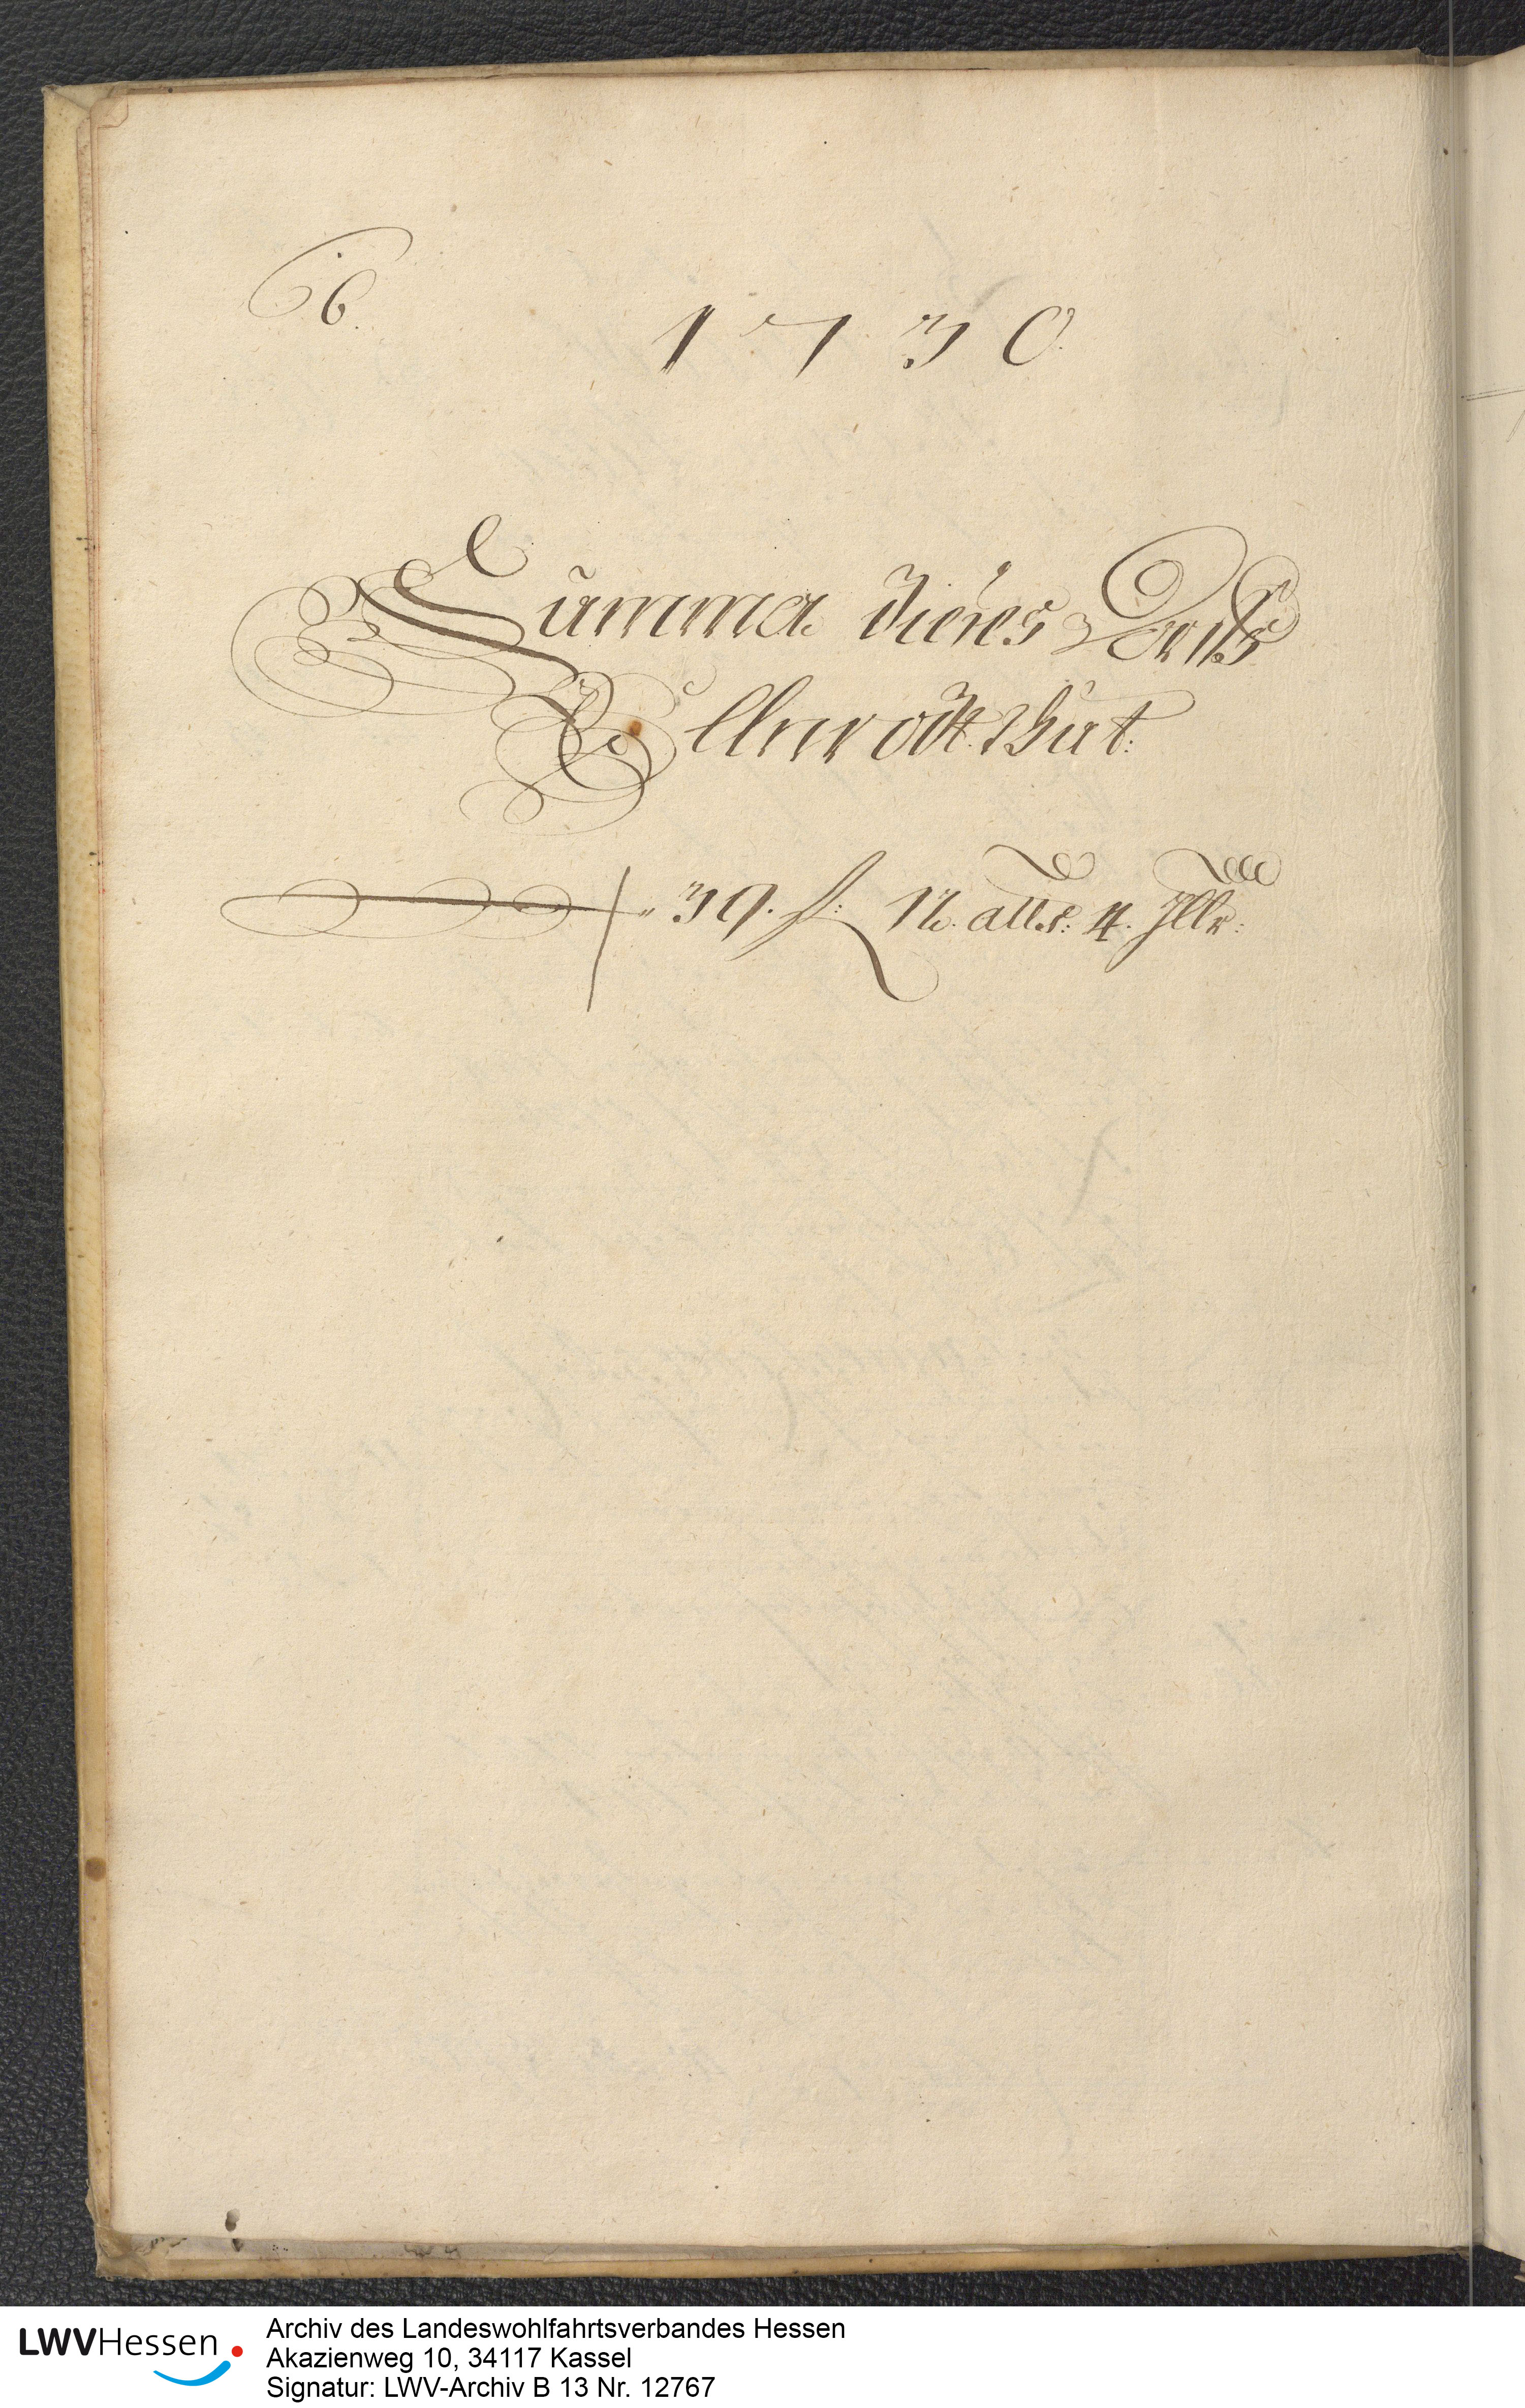 6.
1730.
Summa dieses Dorffs
Ellnrodt thut:
39. fl: 12. alb: 4. Hllr:
LWVHessen
Archiv des Landeswohlfahrtsverbandes Hessen
Akazienweg 10, 34117 Kassel
Signatur: LWV-Archiv B 13 Nr. 12767